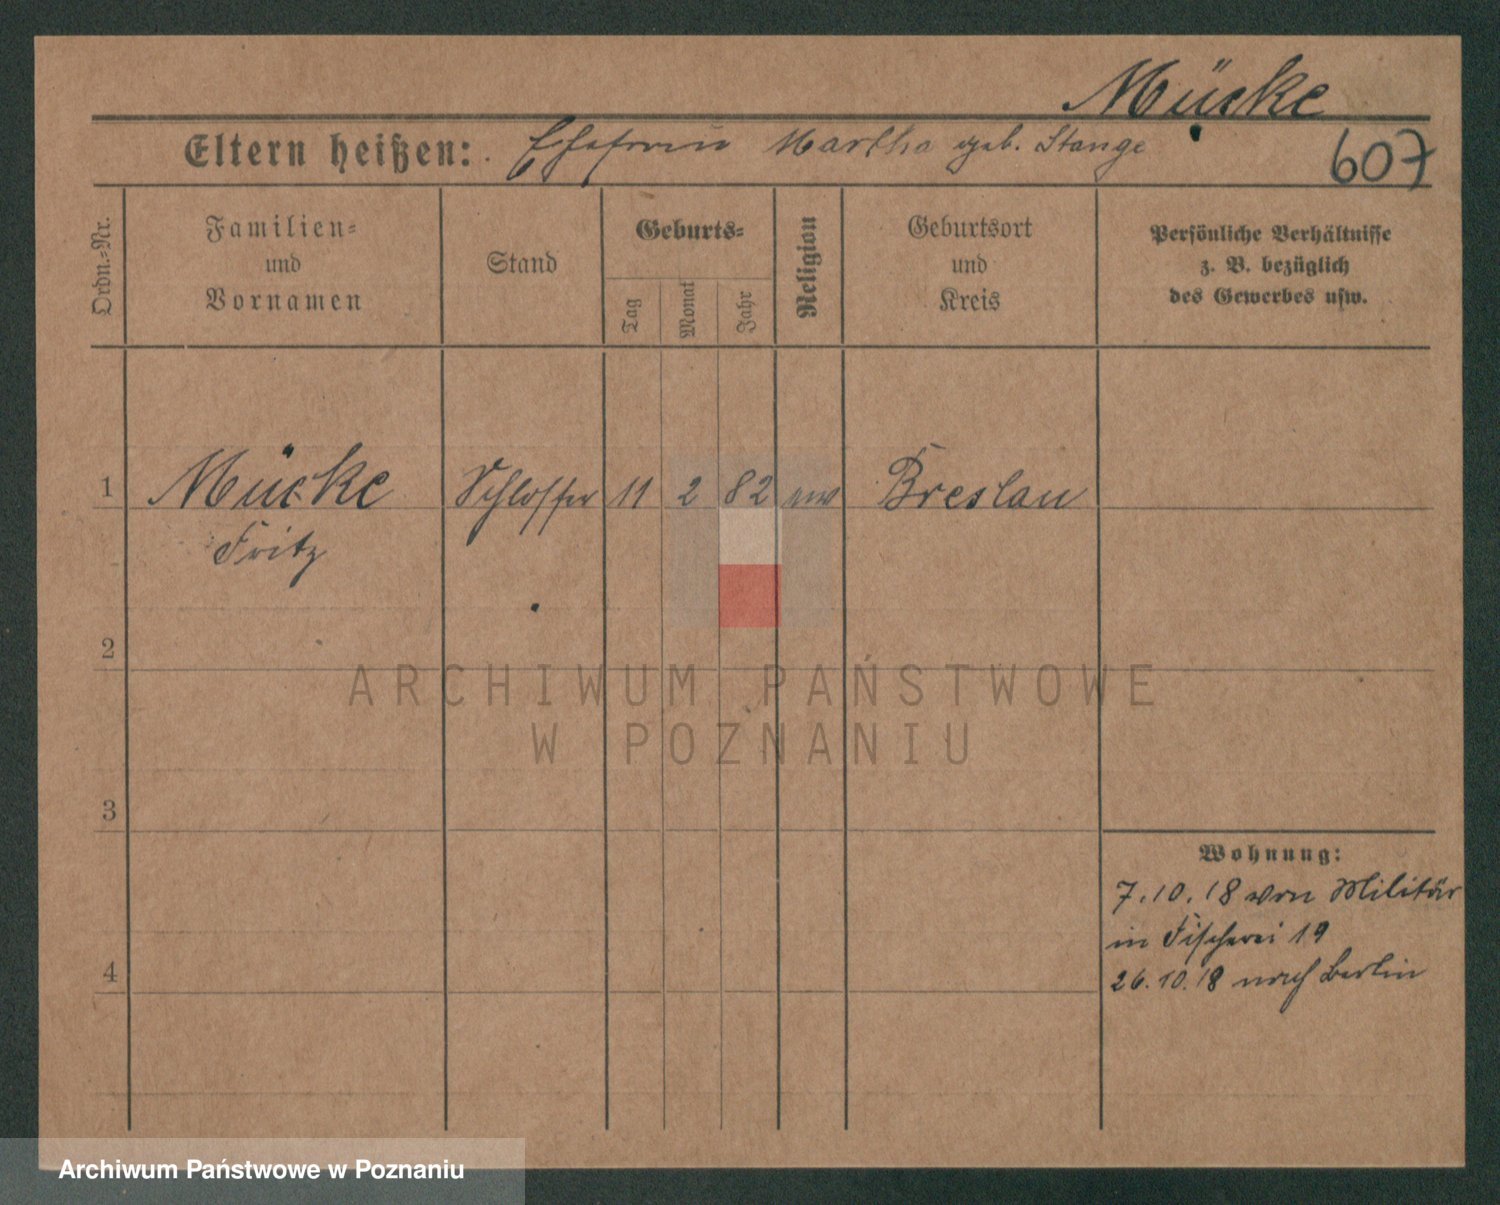 Mücke
Eltern heißen: Ehefrau Martha geb. Stange
607
Ordn.-Nr.
Familien-
und
Vornamen
Stand
Geburts-
Tag
Monat
Jahr
Religion
Geburtsort
und
Kreis
Persönliche Verhältnisse
z. B. bezüglich
des Gewerbes usw.
1 Mücke Schlosser 11 2 82 ew Breslau
Fritz
2
ARCHIWUM PAŃSTWOWE
W POZNANIU
3
Wohnung:
7.10.18 von Militär
in Fischerei 19
4
26.10.18 nach Berlin
Archiwum Państwowe w Poznaniu